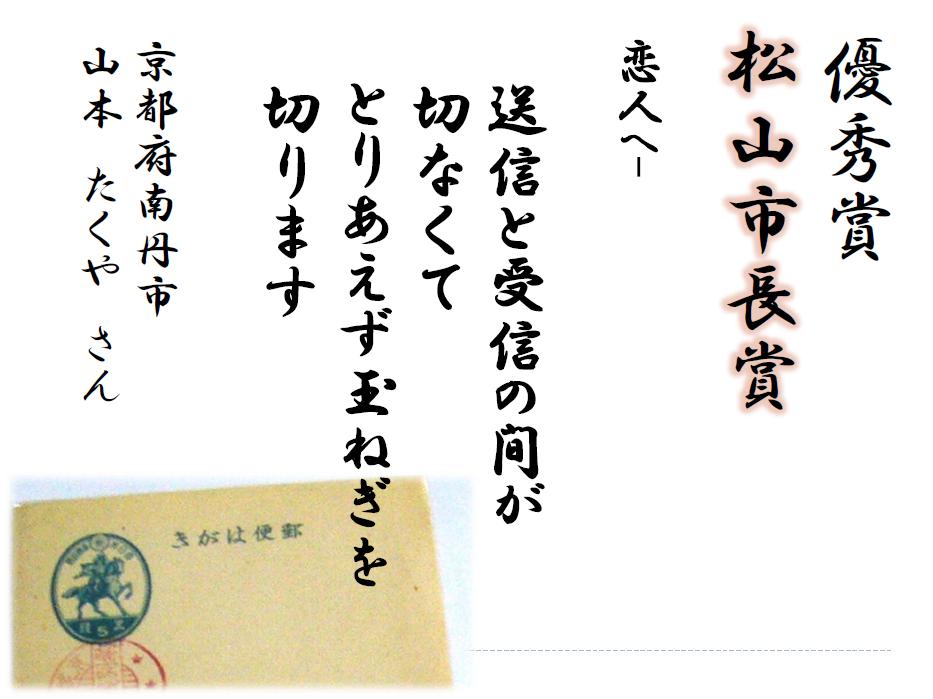 優秀賞
松山市長賞
恋人へ―
送信と受信の間が
切なくて
とりあえず玉ねぎを
切ります
京都府南丹市
山本 たくや さん
きがは便郵